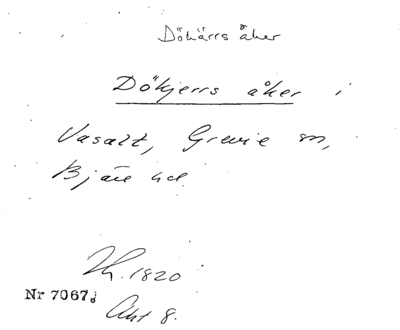 Dökärrs åker
Dökjerrs åker i
Vasalt, Grevie sn,
Bjäre hd.
1820
Nr 7067.
Akt 8.